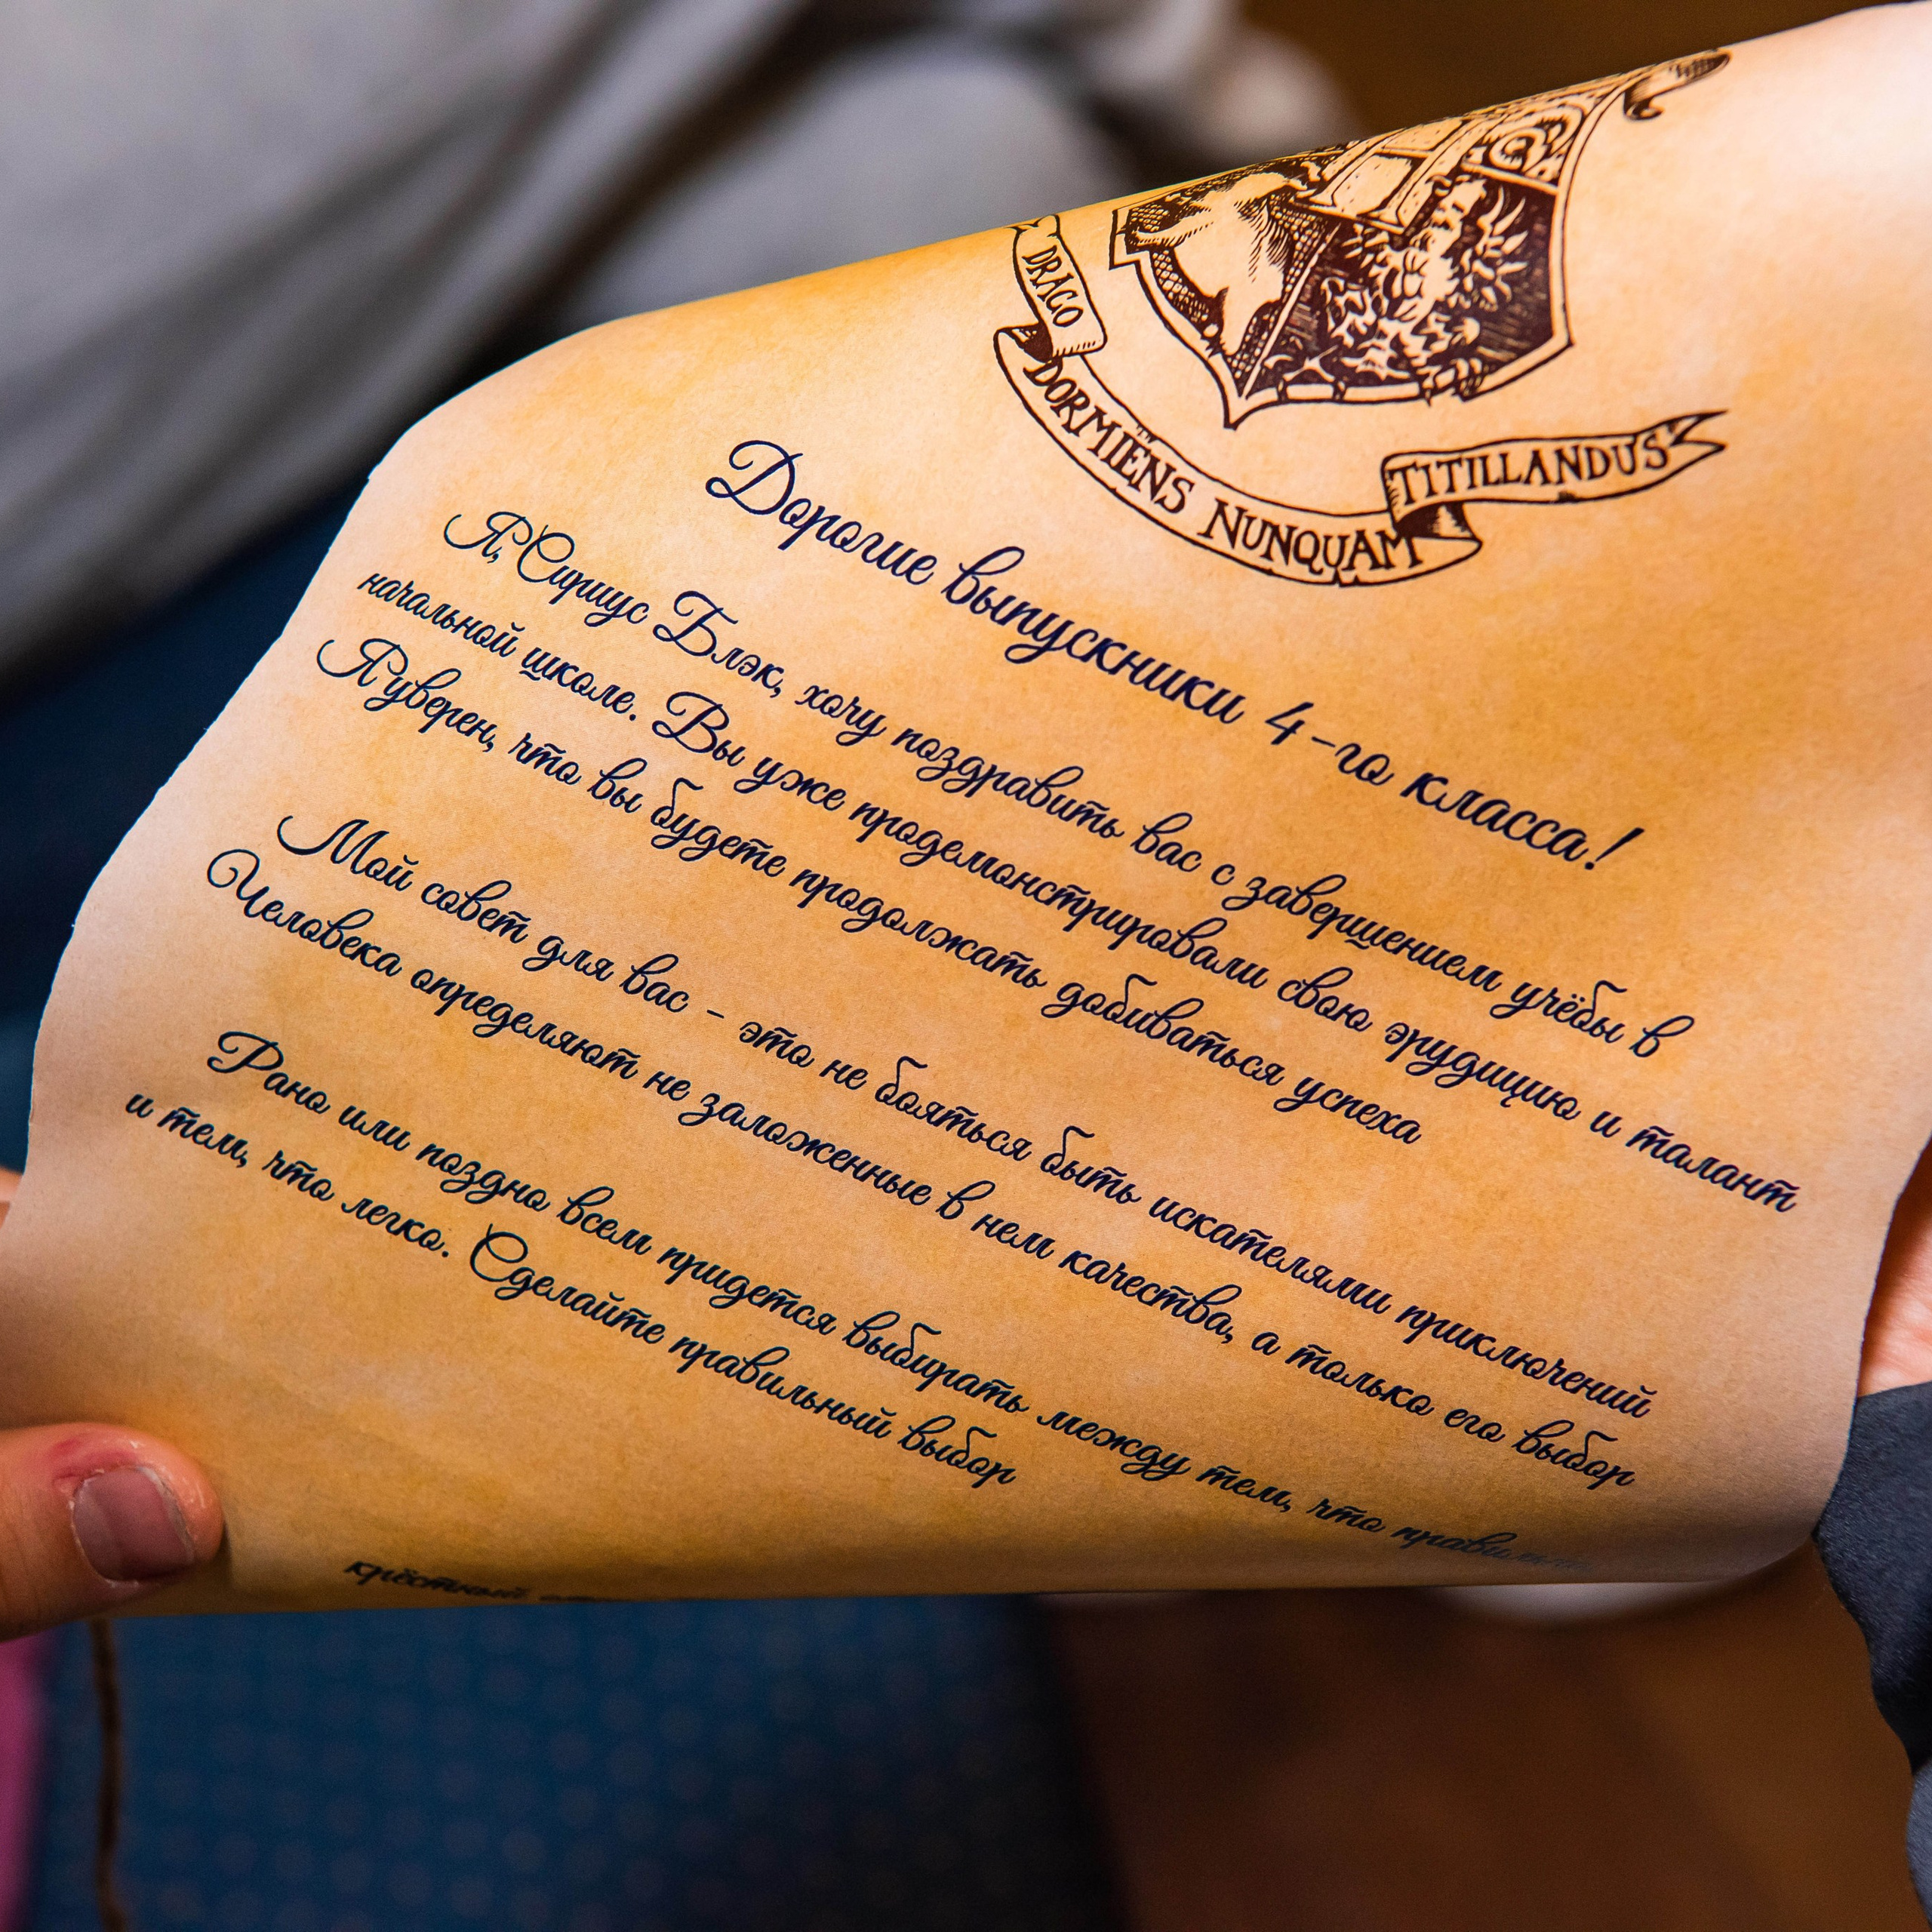 DRACO
DORMIENS NUNQUAM
TITILLANDUS
Дорогие выпускники 4-го класса!
Я, Сириус Блэк, хочу поздравить вас с завершением учёбы в
начальной школе. Вы уже продемонстрировали свою эрудицию и талант
Я уверен, что вы будете продолжать добиваться успеха
Мой совет для вас - это не бояться быть искателями приключений
Человека определяют не заложенные в нем качества, а только его выбор
Рано или поздно всем придется выбирать между тем, что правильно
и тем, что легко. Сделайте правильный выбор
крёстный